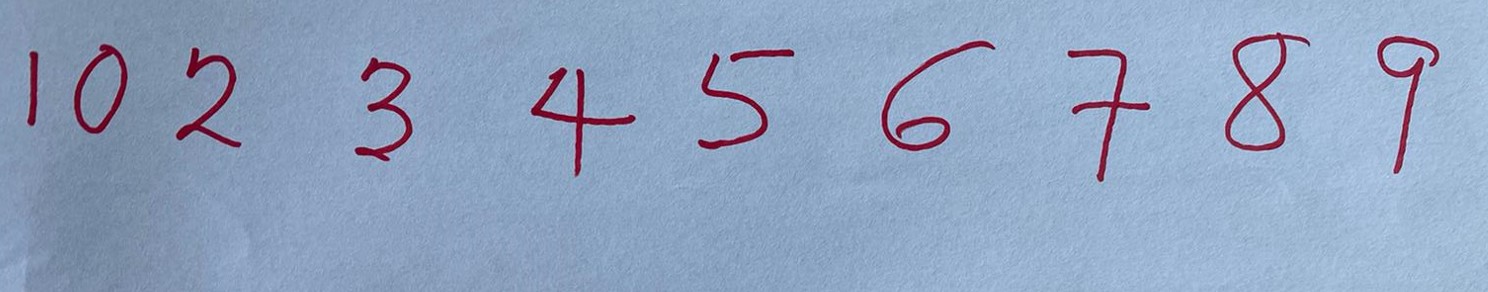 10 2 3 4 5 6 7 8 9